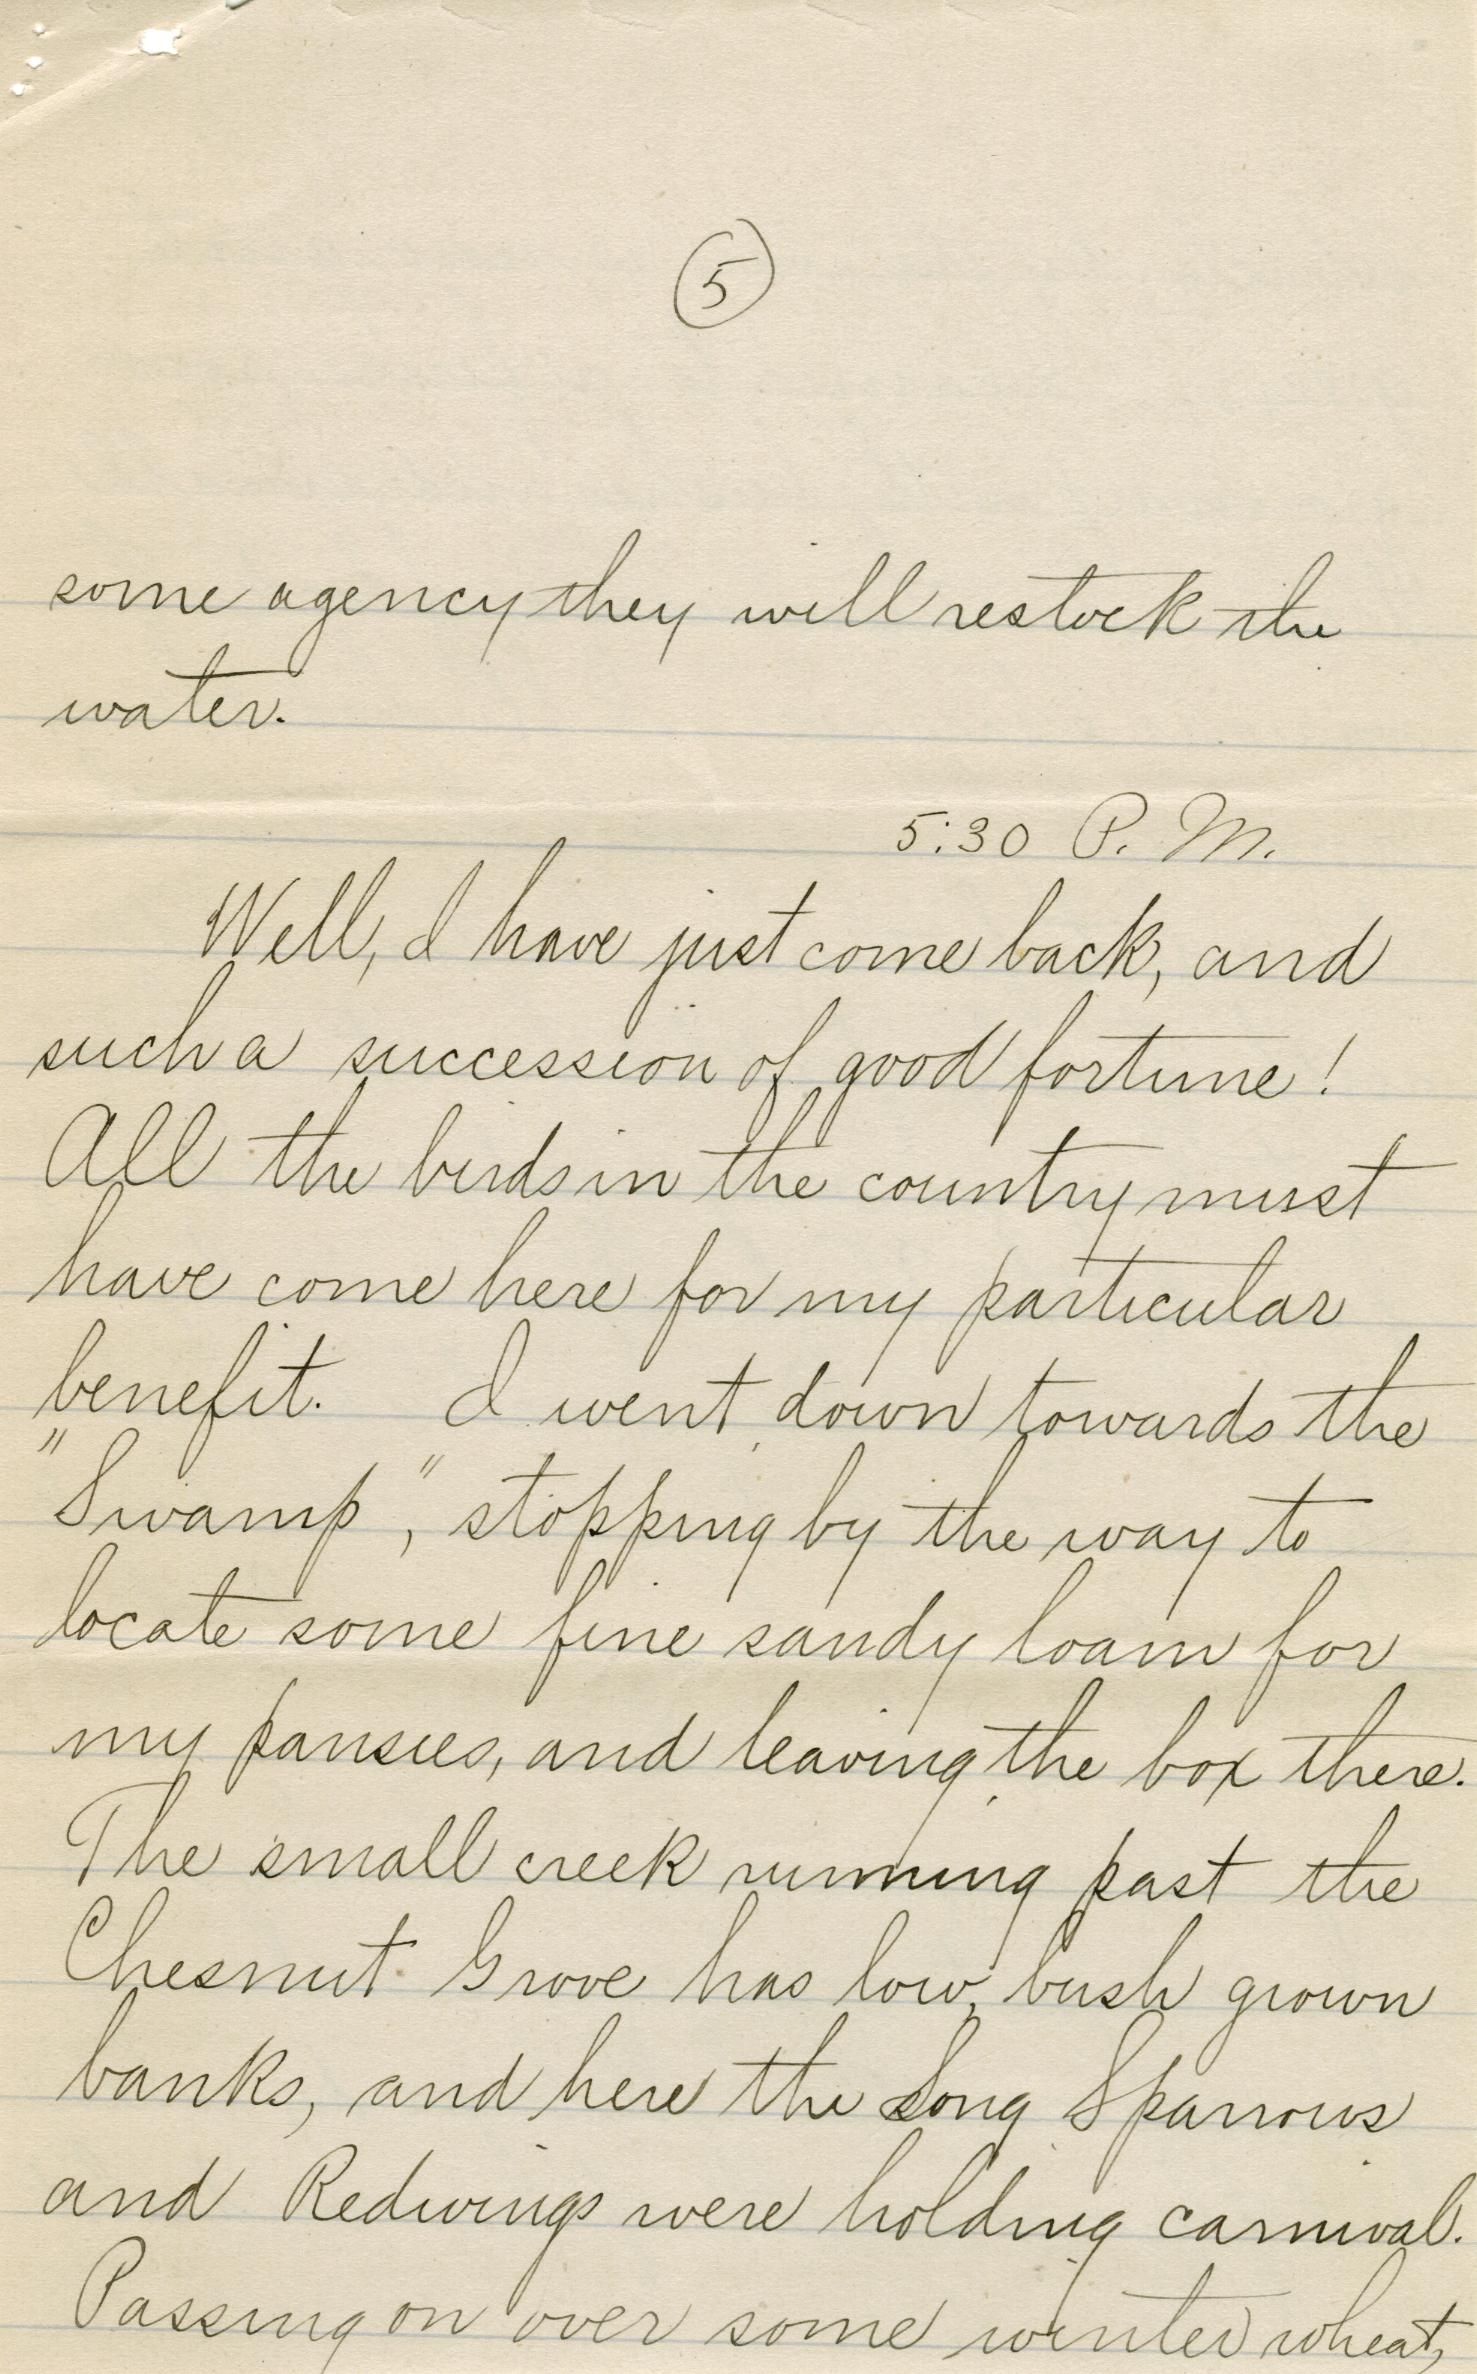 5
some agency they will restock the
water.
5:30 P. M.
Well, I have just come back, and
such a succession of good fortune!
All the birds in the country must
have come here for my particular
benefit. I went down towards the
"Swamp", stopping by the way to
locate some fine sandy loam for
my pansies, and leaving the box there.
The small creek running past the
Chesnut Grove has low, bush grown
banks, and here the Song Sparrows
and Redwings were holding carnival.
Passing on over some winter wheat,